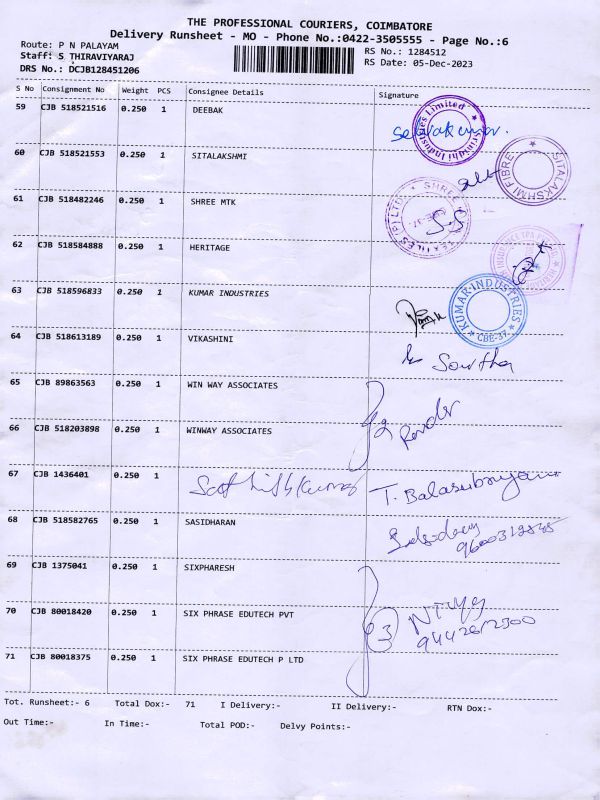 THE PROFESSIONAL COURIERS, COIMBATORE
Delivery Runsheet - MO - Phone No.:0422-3505555 - Page No.:6
Route: P N PALAYAM
RS No.: 1284512
Staff: S THIRAVIYARAJ
RS Date: 05-Dec-2023
DRS No.: DCJB128451206
S No Consignment No Weight PCS Consignee Details Signature
59 CJB 518521516 0.250 1 DEEBAK
60 CJB 518521553 0.250 1 SITALAKSHMI
SITALAKSHMI FIBRE
61 CJB 518482246 0.250 1 SHREE MTK
S.S
62 CJB 518584888 0.250 1 HERITAGE
63 CJB 518596833 0.250 1 KUMAR INDUSTRIES
KUMAR INDUSTRIES
CBE-37
64 CJB 518613189 0.250 1 VIKASHINI
65 CJB 89863563 0.250 1 WIN WAY ASSOCIATES
66 CJB 518203898 0.250 1 WINWAY ASSOCIATES
67 CJB 1436401 0.250 1 T. Balasubramani
68 CJB 518582765 0.250 1 SASIDHARAN
69 CJB 1375041 0.250 1 SIXPHARESH
70 CJB 80018420 0.250 1 SIX PHRASE EDUTECH PVT
3
71 CJB 80018375 0.250 1 SIX PHRASE EDUTECH P LTD
Tot. Runsheet:- 6 Total Dox:- 71 I Delivery:- II Delivery:- RTN Dox:-
Out Time:- In Time:- Total POD:- Delvy Points:-